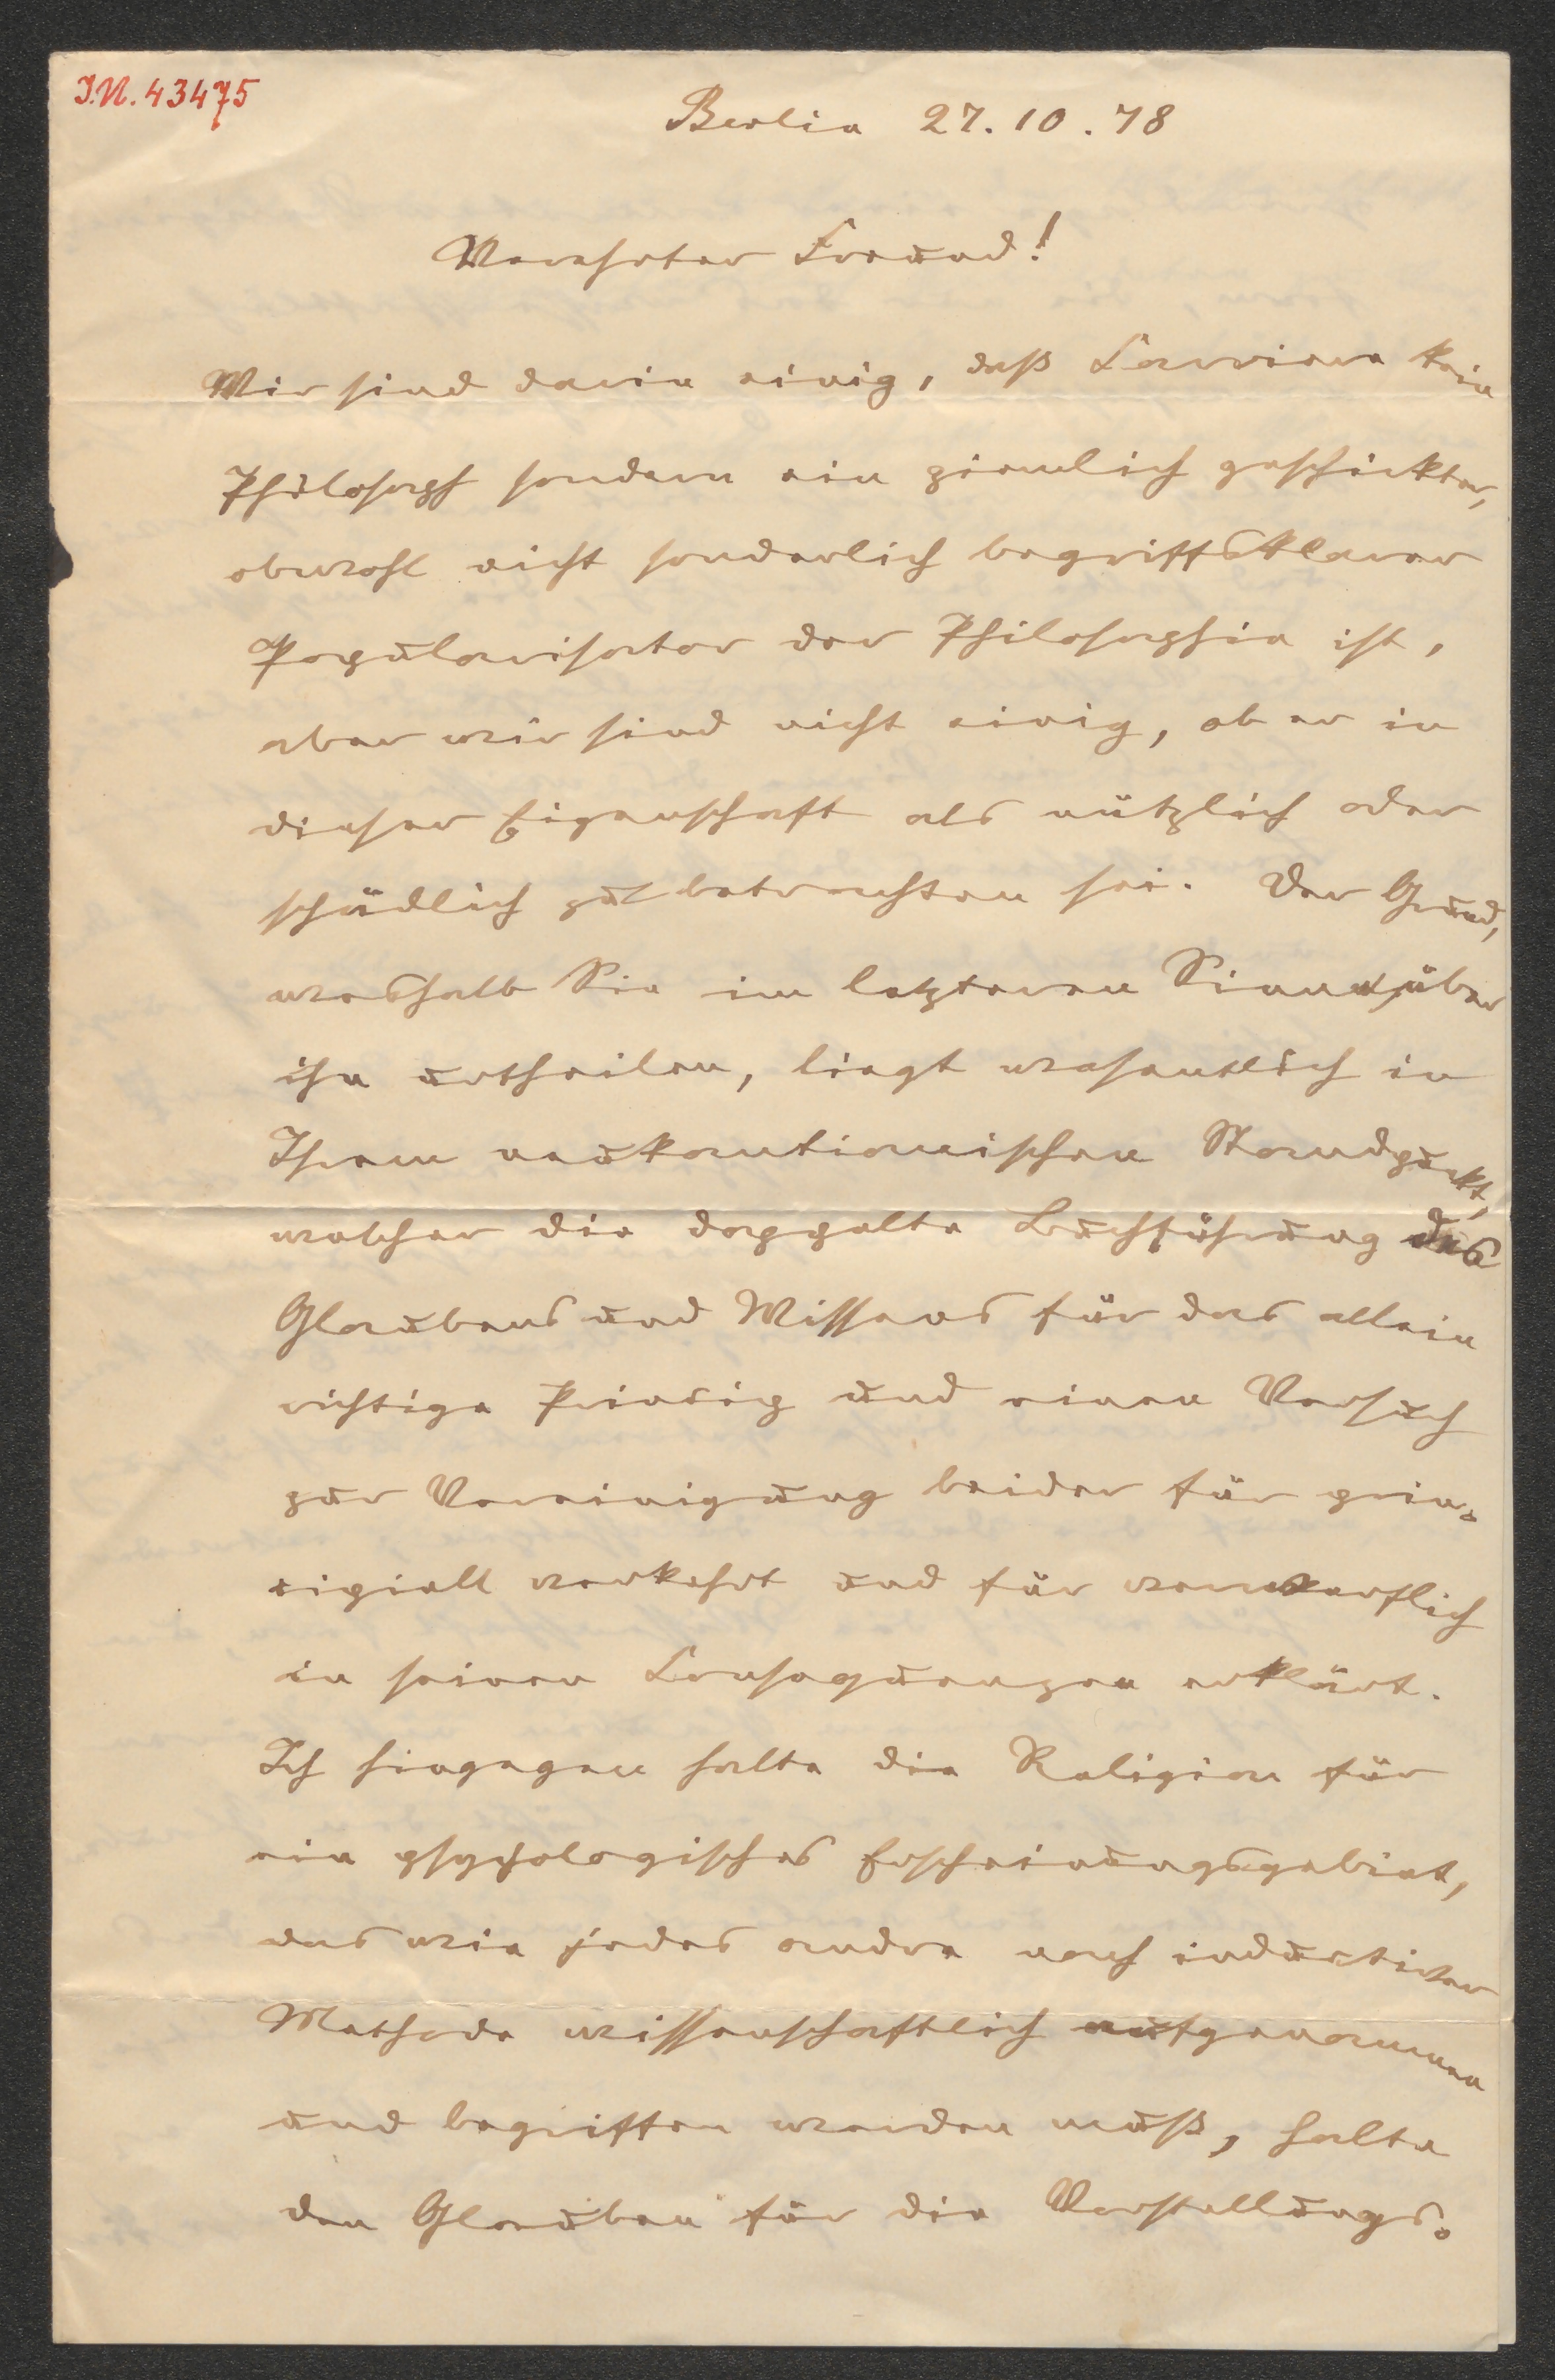 I.N. 43475
Berlin 27.10.78
Verehrter Freund!
Wir sind darin einig, daß Carriere kein
Philosoph sondern ein ziemlich geschickter,
obwohl nicht sonderlich begriffsklarer
Popularisator der Philosophie ist,
aber wir sind nicht einig, ob er in
dieser Eigenschaft als nützlich oder
schädlich zu betrachten sei. Der Grund,
weshalb Sie im letzteren Sinne über
ihn urtheilen, liegt wesentlich in
Ihrem neukantianischen Standpunkt,
welcher die doppelte Buchführung des
Glaubens und Wissens für das allein
richtige Princip und einen Versuch
zur Vereinigung beider für prin-
cipiell verkehrt und für verwerflich
in seinen Consequenzen erklärt.
Ich hingegen halte die Religion für
ein psychologisches Erscheinungsgebiet,
das wie jedes andre nach inductiver
Methode wissenschaftlich aufgenommen
und begriffen werden muß, halte
den Glauben für die Vorstellungs-